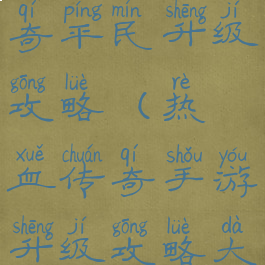 qí píng mín shēng jí
奇平民升级
gōng lüè rè
攻略（热
xuě chuán qí shǒu yóu
血传奇手游
shēng jí gōng lüè dà
升级攻略大